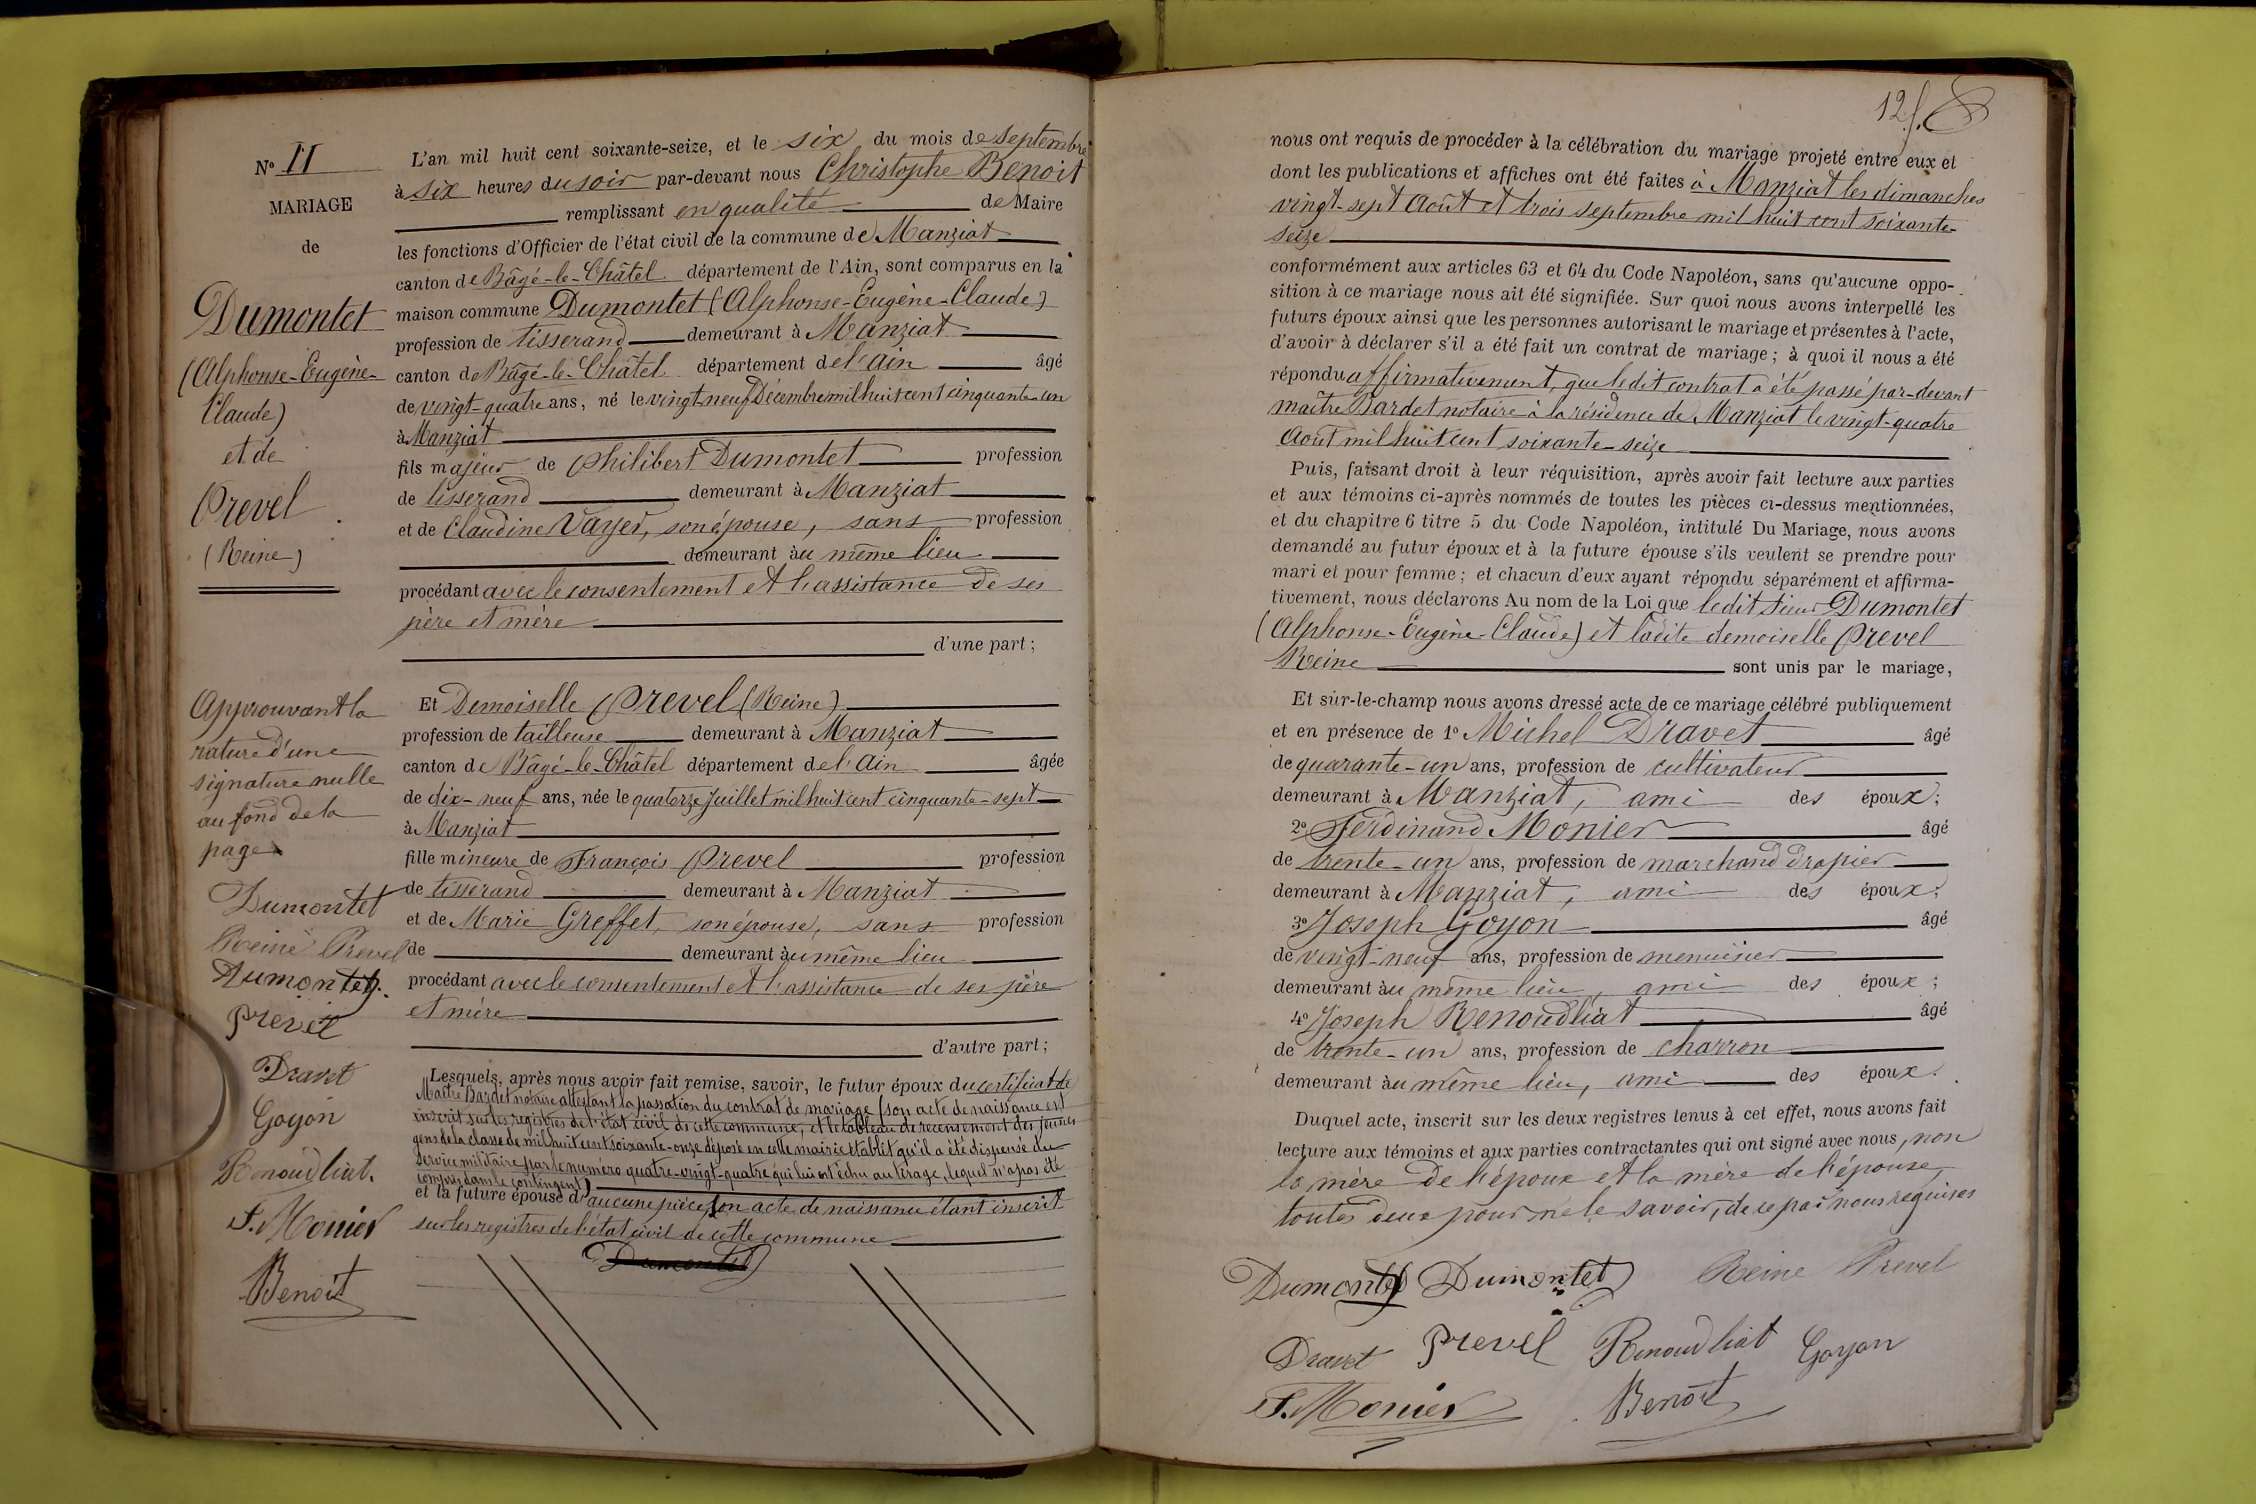 N° 11
MARIAGE
de
Dumontet
(Alphonse-Eugène-
Claude)
et de
Prevel
(Reine)
Approuvant la
rature d'une
signature nulle
au fond de la
page
Dumontet
Reine Prevel
Dumontet
Prevel
Dravet
Goyon
Renoudliat.
F. Monier
Benoit
L'an mil huit cent soixante-seize, et le six du mois de Septembre
à six heures du soir par-devant nous Christophe Benoit
remplissant en qualité de Maire
les fonctions d'Officier de l'état civil de la commune de Manziat
canton de Bâgé-le-Châtel département de l'Ain, sont comparus en la
maison commune Dumontet (Alphonse-Eugène-Claude)
profession de tisserand demeurant à Manziat
canton de Bâgé-le-Châtel département de l'ain âgé
de vingt-quatre ans, né le vingt neuf Décembre mil huit cent cinquante-un
à Manziat
fils majeur de Philibert Dumontet profession
de tisserand demeurant à Manziat
et de Claudine Vayer, son épouse, sans profession
demeurant au même lieu
procédant avec le consentement et l'assistance de ses
père et mère
d'une part ;
Et Demoiselle Prevel (Reine)
profession de tailleuse demeurant à Manziat
canton de Bâgé-le-Châtel département de l'ain âgée
de dix-neuf ans, née le quatorze Juillet mil huit cent cinquante-sept
à Manziat
fille mineure de François Prevel profession
de tisserand demeurant à Manziat
et de Marie Greffet, son épouse, sans profession
de demeurant au même lieu
procédant avec le consentement et l'assistance de ses père
et mère
d'autre part ;
Lesquels, après nous avoir fait remise, savoir, le futur époux du certificat de
Maître Bardet notaire attestant la passation du contrat de mariage (son acte de naissance est
inscrit sur les registres de l'état civil de cette commune, et le tableau de recensement des jeunes
gens de la classe de mil huit cent soixante-onze déposé en cette mairie établit qu'il a été dispensé du
service militaire par le numéro quatre-vingt-quatre qui lui est échu au tirage, lequel n'a pas été
compris dans le contingent)
et la future épouse d'aucune pièce, son acte de naissance étant inscrit
sur les registres de l'état civil de cette commune
Dumontet
12 f.
nous ont requis de procéder à la célébration du mariage projeté entre eux et
dont les publications et affiches ont été faites à Manziat les dimanches
vingt-sept Août et trois septembre mil huit cent soixante-
seize
conformément aux articles 63 et 64 du Code Napoléon, sans qu'aucune oppo-
sition à ce mariage nous ait été signifiée. Sur quoi nous avons interpellé les
futurs époux ainsi que les personnes autorisant le mariage et présentes à l'acte,
d'avoir à déclarer s'il a été fait un contrat de mariage ; à quoi il nous a été
répondu affirmativement, que ledit contrat a été passé par-devant
maître Bardet notaire à la résidence de Manziat le vingt-quatre
Août mil huit cent soixante-seize
Puis, faisant droit à leur réquisition, après avoir fait lecture aux parties
et aux témoins ci-après nommés de toutes les pièces ci-dessus mentionnées,
et du chapitre 6 titre 5 du Code Napoléon, intitulé Du Mariage, nous avons
demandé au futur époux et à la future épouse s'ils veulent se prendre pour
mari et pour femme ; et chacun d'eux ayant répondu séparément et affirma-
tivement, nous déclarons Au nom de la Loi que ledit sieur Dumontet
(Alphonse-Eugène-Claude) et ladite demoiselle Prevel
Reine sont unis par le mariage,
Et sur-le-champ nous avons dressé acte de ce mariage célébré publiquement
et en présence de 1° Michel Dravet âgé
de quarante-un ans, profession de cultivateur
demeurant à Manziat, ami des époux ;
2° Ferdinand Monier âgé
de trente-un ans, profession de marchand drapier
demeurant à Manziat, ami des époux ;
3° Joseph Goyon âgé
de vingt-neuf ans, profession de menuisier
demeurant au même lieu, ami des époux ;
4° Joseph Renoudliat âgé
de trente-un ans, profession de charron
demeurant au même lieu, ami des époux.
Duquel acte, inscrit sur les deux registres tenus à cet effet, nous avons fait
lecture aux témoins et aux parties contractantes qui ont signé avec nous, non
la mère de l'époux et la mère de l'épouse,
toutes deux pour ne le savoir, de ce par nous requises
Dumontet Dumontet Reine Prevel
Dravet Prevel Renoudliat Goyon
F. Monier Benoit